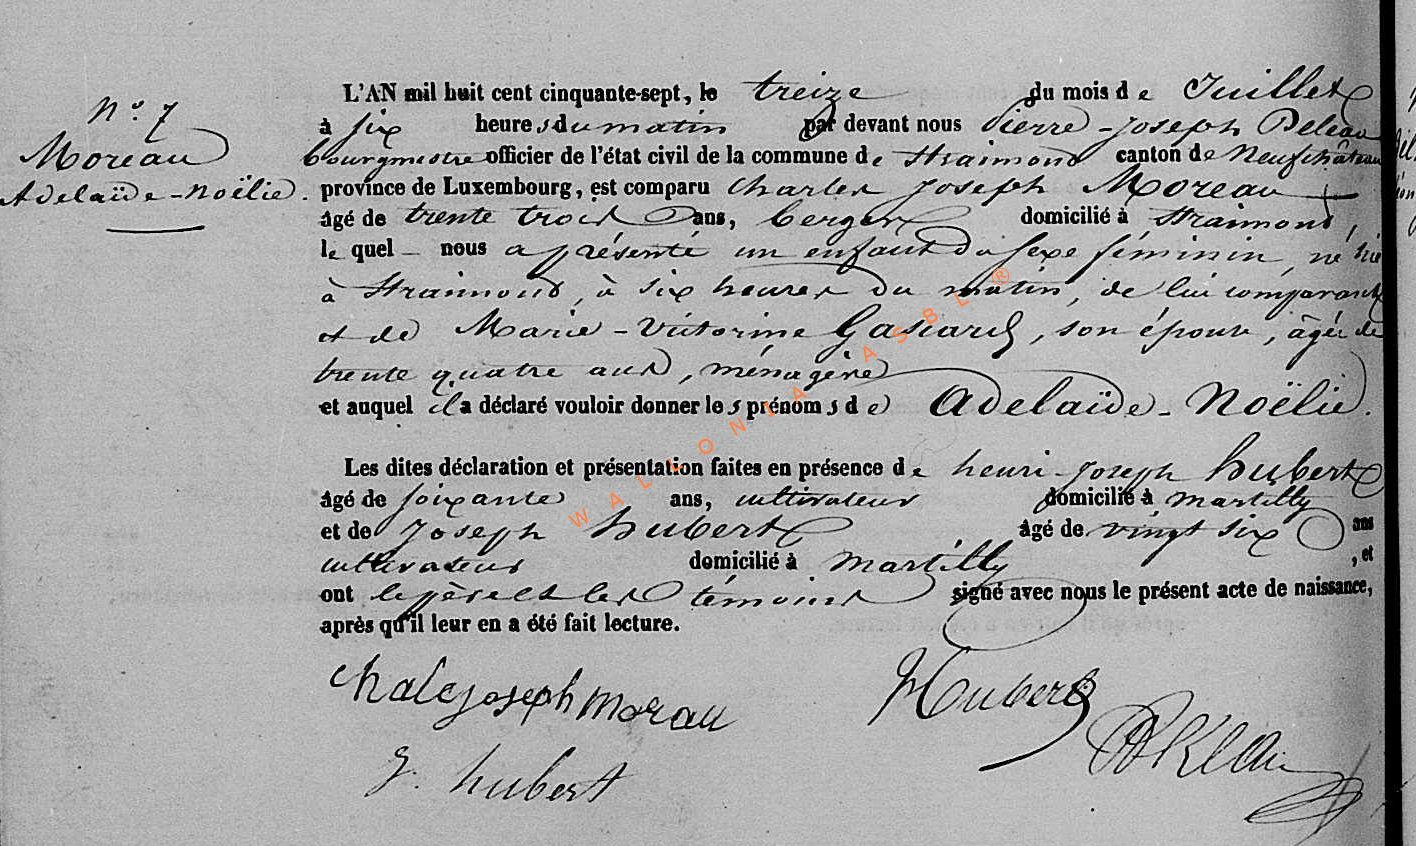 N.° 7
Moreau
Adelaïde-Noëlie.
L'AN mil huit cent cinquante-sept, le treize du mois de Juillet
à six heures du matin par devant nous Pierre-Joseph
bourgmestre officier de l'état civil de la commune de Straimont canton de Neufchâteau
province de Luxembourg, est comparu Charles Joseph Moreau
âgé de trente trois ans, berger domicilié à Straimont,
lequel nous a présenté un enfant du sexe féminin, né hier
à Straimont, à six heures du matin, de lui comparant
et de Marie-Victorine Gascard, son épouse, âgée de
trente quatre ans, ménagère
et auquel il a déclaré vouloir donner les prénoms de Adelaïde-Noëlie.
Les dites déclaration et présentation faites en présence de henri-Joseph hubert
âgé de soixante ans, cultivateur domicilié à martilly
et de Joseph hubert âgé de vingt six ans
cultivateur domicilié à martilly, et
ont le père et les témoins signé avec nous le présent acte de naissance,
après qu'il leur en a été fait lecture.
chalejosephmorau
Hubert
J. hubert
WALLONIA ASBL ®